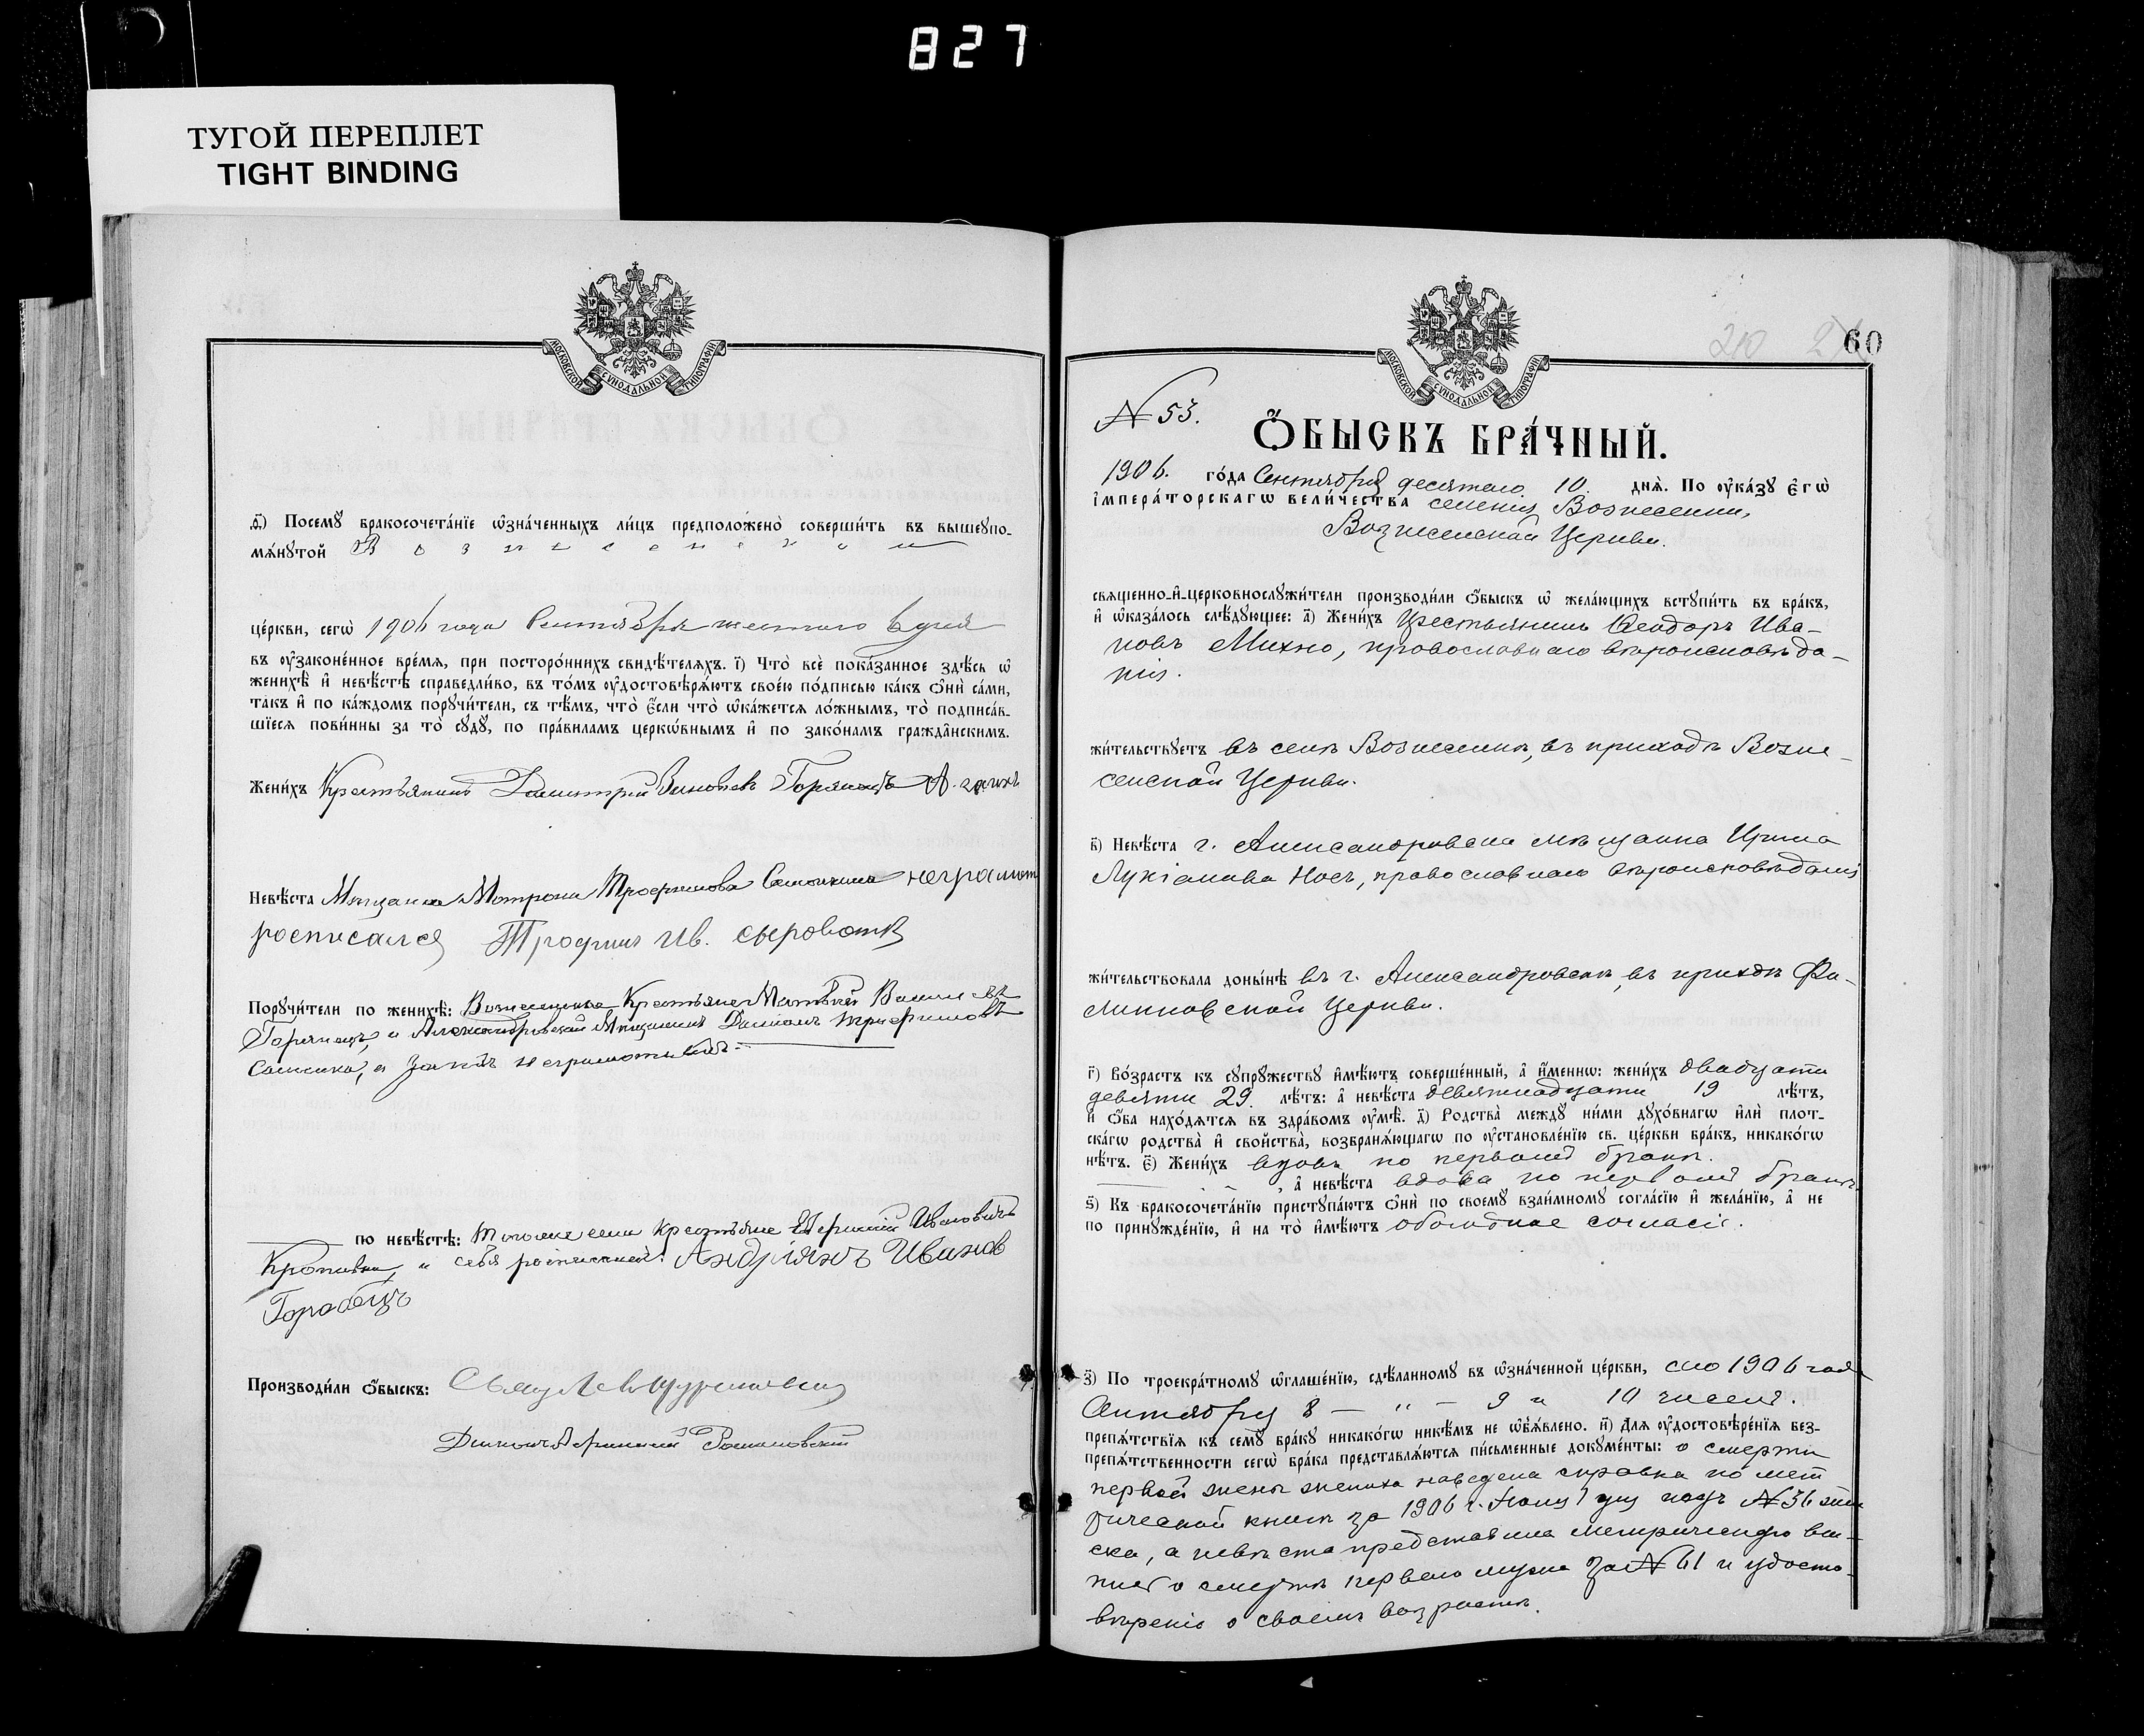 827
ТУГОЙ ПЕРЕПЛЕТ
TIGHT BINDING
МОСКОВСКОЙ СѴНОДАЛЬНОЙ ТИПОГРАФІИ
ѳ҃) Посемꙋ бракосочета́нїе ѡ҆зна́ченныхъ ли́цъ предположено̀ соверши́ть въ вышеꙋпо-
мѧ́нꙋтой Вознесенской
це́ркви, сегѡ̀ 1906 года Сентября шестого 6 дня
въ ᲂу҆зако́ненное вре́мѧ, при посторо́ннихъ свидѣ́телѧхъ. і҃) Что̀ всѐ пока́занное здѣ́сь ѡ҆
женихѣ̀ и҆ невѣ́стѣ справедли́во, въ то́мъ ᲂу҆достовѣрѧ́ютъ свое́ю по́дписью ка́къ ѻ҆нѝ са́ми,
та́къ и҆ по ка́ждомъ порꙋчи́тели, съ тѣ́мъ, что̀ є҆́сли что̀ ѡ҆ка́жетсѧ ло́жнымъ, то̀ подписа́в-
шїесѧ пови́нны за то̀ сꙋдꙋ̀, по пра́виламъ церко́внымъ и҆ по зако́намъ гражда́нскимъ.
Жени́хъ Крестьянинъ Димитрій Зиновьевъ Горянецъ
Невѣ́ста Мѣщанка Матрона Трофимова неграмот
росписался Трофим Ив. Сыроватк
Порꙋчи́тели по женихѣ̀: Вознесенскіе Крестьяне Матѳей
Горянецъ, и Александровскій Мѣщанинъ Трофимовъ
а за нихъ неграмотныхъ
по невѣ́стѣ: крестьяне Ефимій Ивановичъ
Кропивка, и себя росписался: Андріянъ Иванов
Горобецъ
Производи́ли ѻ҆́быскъ: Свящ
Діаконъ Романовскій
МОСКОВСКОЙ СѴНОДАЛЬНОЙ ТИПОГРАФІИ
210 60
№ 53.
Ѻ҆́БЫСКЪ БРА́ЧНЫЙ.
1906. го́да Сентября десятаго 10. днѧ̀. По ᲂу҆ка́зꙋ є҆гѡ̀
і҆мпера́торскагѡ вели́чества селенія Вознесенки,
Вознесенской Церкви.
свѧще́нно-и҆-церковнослꙋжи́тели производи́ли ѻ҆́быскъ ѡ҆ жела́ющихъ встꙋпи́ть въ бра́къ,
и҆ ѡ҆каза́лось слѣ́дꙋющее: а҃) Жени́хъ Крестьянинъ Ѳеодоръ Ива-
новъ Михно, православнаго вѣроисповѣда-
нія.
жи́тельствꙋетъ въ селѣ Вознесенкѣ, въ приходѣ Возне-
сенской Церкви.
в҃) Невѣ́ста г. Александровска мѣщанка Ирина
Лукіанова Носъ, православнаго вѣроисповѣданія
жи́тельствовала доны́нѣ въ г. Александровскѣ, въ приходѣ
Церкви.
г҃) Во́зрастъ къ сꙋпрꙋ́жествꙋ и҆мѣ́ютъ соверше́нный, а҆ и҆́меннѡ: жени́хъ двадцати
девяти 29. лѣ́тъ: а҆ невѣ́ста девятнадцати 19 лѣ́тъ,
и҆ ѻ҆́ба нахо́дѧтсѧ въ здра́вомъ ᲂу҆мѣ̀. д҃) Родства̀ междꙋ̀ ни́ми дꙋхо́внагѡ и҆лѝ плот-
ска́гѡ родства̀ и҆ сво́йства̀, возбранѧ́ющагѡ по ᲂу҆становле́нїю св. це́ркви бра́къ, никако́гѡ
нѣ́тъ. є҃) Жени́хъ вдовъ по первомъ бракѣ.
, а҆ невѣ́ста вдова по первомъ бракѣ.
ѕ҃) Къ бракосочета́нїю пристꙋпа́ютъ ѻ҆нѝ по своемꙋ̀ взаи́мномꙋ согла́сїю и҆ жела́нїю, а҆ не
по принꙋжде́нїю, и҆ на то̀ и҆мѣ́ютъ обоюдное согласіе.
з҃) По троекра́тномꙋ ѡ҆глаше́нїю, сдѣ́ланномꙋ въ ѡ҆зна́ченной це́ркви, сего 1906 года
Сентября 8 — " — 9 и 10 чиселъ.
препѧ́тствїѧ къ семꙋ̀ бра́кꙋ никако́гѡ никѣ́мъ не ѡ҆б̾ѧ́влено. и҃) Для ᲂу҆достовѣре́нїѧ без-
препѧ́тственности сегѡ̀ бра́ка представлѧ́ютсѧ пи́сьменные докꙋме́нты: о смерти
первой жены жениха наведена справка по мет
рической книгѣ за 1906 г. подъ № 36
ска, а невѣста представила метрическую вы-
пись о смерти перваго мужа за № 61 и удосто-
вѣреніе о своемъ возрастѣ.